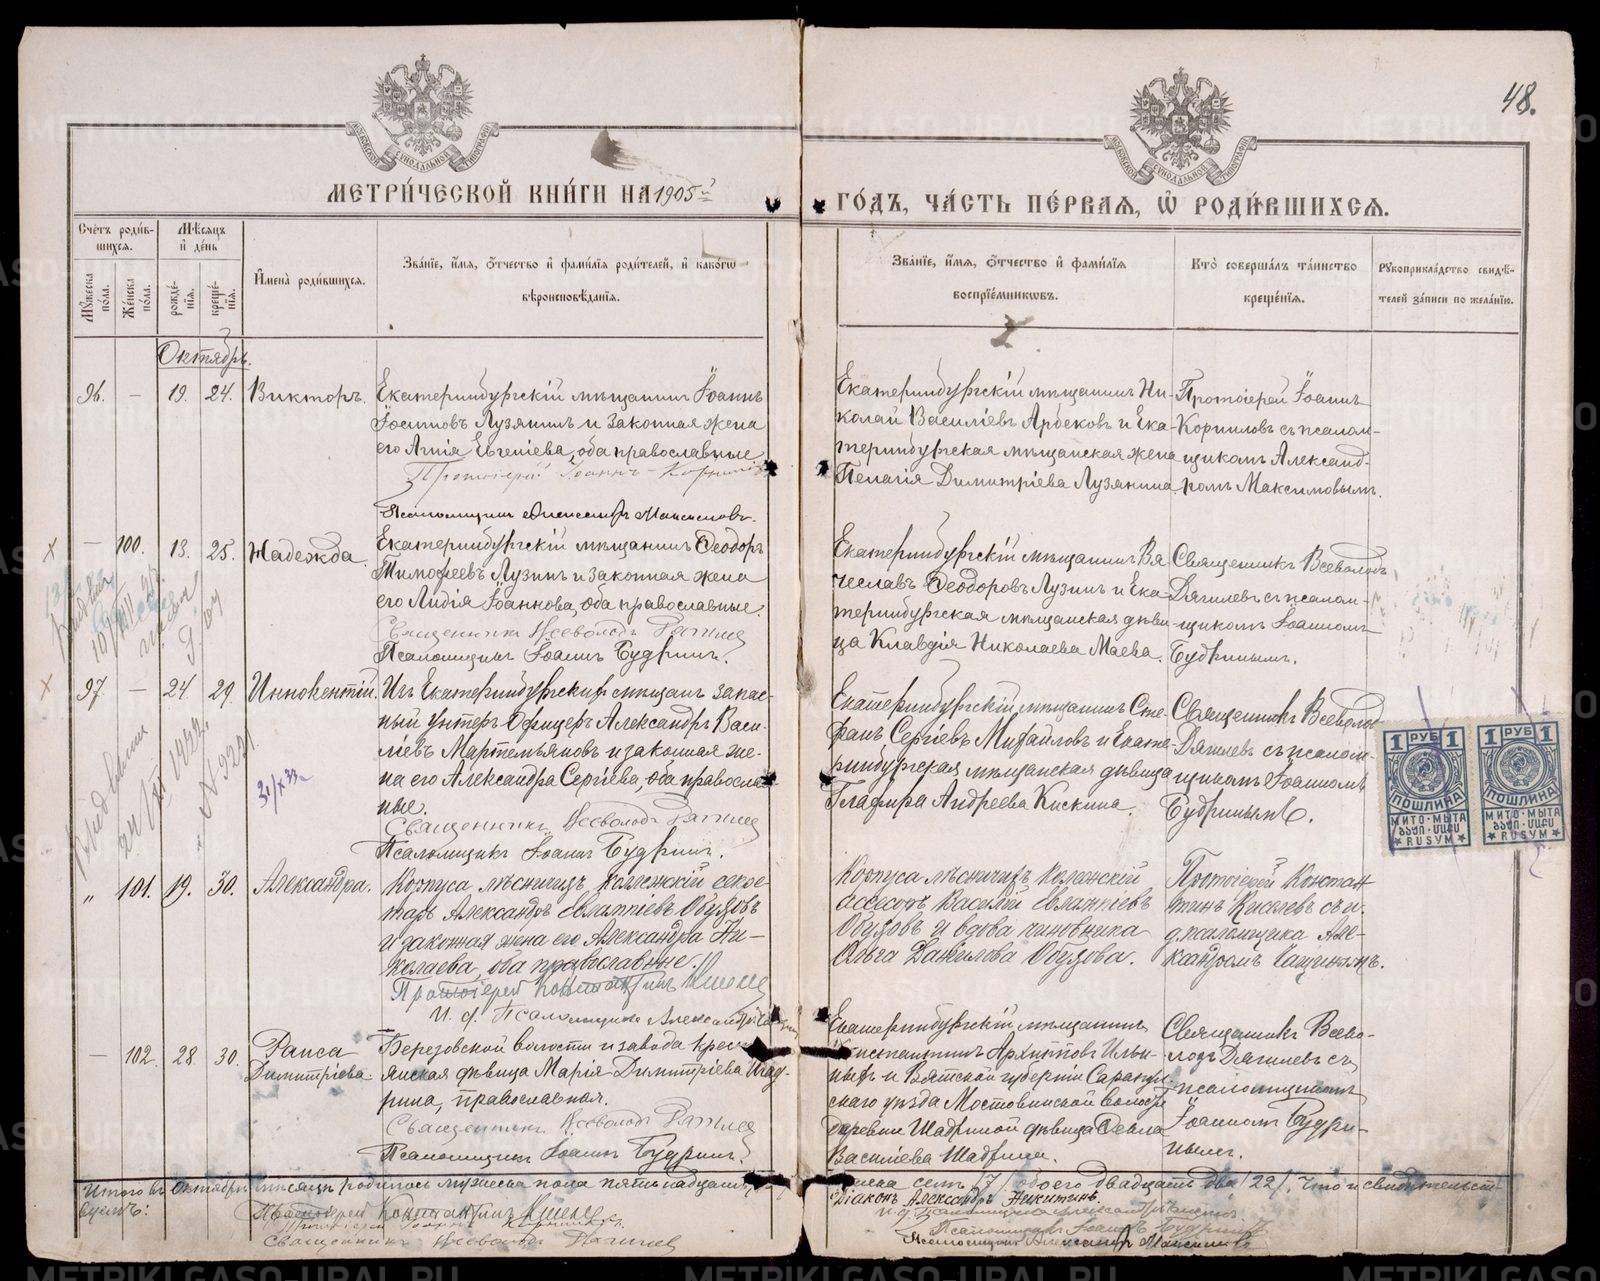 48.
МЕТРИ́ЧЕСКОЙ КНИ́ГИ НА 1905й
ГО́ДЪ, ЧА́СТЬ ПЕ́РВАЯ, Ѡ РОДИ́ВШИХСЯ.
Сче́тъ роди́в-
шихся.
Мѣ́сяцъ
и де́нь
Мꙋ́жеска по́ла.
Же́нска по́ла.
рожде́-
нїя.
креще́-
нїя.
Имена̀ роди́вшихся.
Зва́нїе, и́мя, о́тчество и фами́лїя роди́телей, и како́гѡ
вѣроисповѣ́данїя.
Зва́нїе, и́мя, о́тчество и фами́лїя
воспрїе́мниковъ.
Кто̀ соверша́лъ та́инство
креще́нїя.
Рꙋкоприкла́дство свидѣ́-
телей за́писи по жела́нїю.
Октябрь.
96. — 19. 24. Викторъ.
Екатеринбургскій мѣщанинъ Іоаннъ
Іосифовъ Лузянинъ и законная жена
его Анна Евгеніева, оба православные
Протоіерей Іоаннъ Корниловъ
Псаломщикъ Александръ Максимовъ.
Екатеринбургскій мѣщанинъ Ни-
колай Васильевъ Арбековъ и Ека-
теринбургская мѣщанская жена
Пелагія Димитріева Лузянина
Протоіерей Іоаннъ
Корниловъ съ псалом-
щикомъ Александ-
ромъ Максимовымъ.
— 100. 13. 25. Надежда.
Екатеринбургскій мѣщанинъ Ѳеодоръ
Тимоѳеевъ Лузинъ и законная жена
его Лидія Іоаннова, оба православные.
Священникъ Всеволодъ Дягилевъ
Псаломщикъ Іоаннъ Будринъ.
Екатеринбургскій мѣщанинъ Вя
чеславъ Ѳеодоровъ Лузинъ и Ека-
теринбургская мѣщанская дѣви
ца Клавдія Николаева Маева.
Священникъ Всеволодъ
Дягилевъ съ псалом-
щикомъ Іоанномъ
Будринымъ.
97. — 24. 29. Иннокентій.
Изъ Екатеринбургскихъ мѣщанъ запас-
ный унтеръ-офицеръ Александръ Васи-
ліевъ Мартемьяновъ и законная же-
на его Александра Сергіева, оба православ-
ные.
Священникъ Всеволодъ Дягилевъ
Псаломщикъ Іоаннъ Будринъ.
Екатеринбургскій мѣщанинъ Сте-
фанъ Сергіевъ Михайловъ и Екате-
ринбургская мѣщанская дѣвица
Глафира Андреева Кискина.
Священникъ Всеволод
Дягилевъ съ псалом-
щикомъ Іоанномъ
Будринымъ.
1 РУБ 1
ПОШЛИНА
МИТО · МЫТА
RUSYM
1 РУБ 1
ПОШЛИНА
МИТО · МЫТА
RUSYM
„ 101. 19. 30. Александра.
Корпуса лѣсничихъ коллежскій секре-
тарь Александръ Евлампіевъ Обуховъ
и законная жена его Александра Ни-
колаева, оба православные.
Протоіерей Константинъ
И. д. Псаломщика Александръ
Корпуса лѣсничихъ Коллежскій
ассесоръ Василій Евлампіевъ
Обуховъ и вдова чиновника
Ольга Даніилова Обухова.
Протоіерей Констан
тинъ съ и.
д. псаломщика Але-
ксандромъ
— 102. 28 30. Раиса
Димитріева
Березовской волости и завода кресть-
янская дѣвица Марія Димитріева Шад-
рина, православная.
Священникъ Всеволодъ Дягилевъ
Псаломщикъ Іоаннъ Будринъ.
Екатеринбургскій мѣщанинъ
Константинъ Архиповъ Ильи-
ныхъ и Вятской губерніи Сарапуль
скаго уѣзда Мостовинской волости
деревни Шадриной дѣвица
Василіева Шадрина.
Священникъ Всево-
лодъ Дягилевъ съ
псаломщикомъ
Іоанномъ Будри-
нымъ.
Итого въ Октябрѣ мѣсяцѣ родилось мужеска пола пятнадцать,
пола семь /7/ обоего двадцать два /22/. Что и свидѣтельст-
вуемъ:
Протоіерей Константинъ
Протоіерей Іоаннъ Корниловъ.
Священникъ Всеволодъ Дягилевъ
Діаконъ Александръ Никитинъ
Псаломщикъ Іоаннъ Будринъ
Псаломщикъ Александръ Максимовъ
METRIKI.GASO-URAL.RU